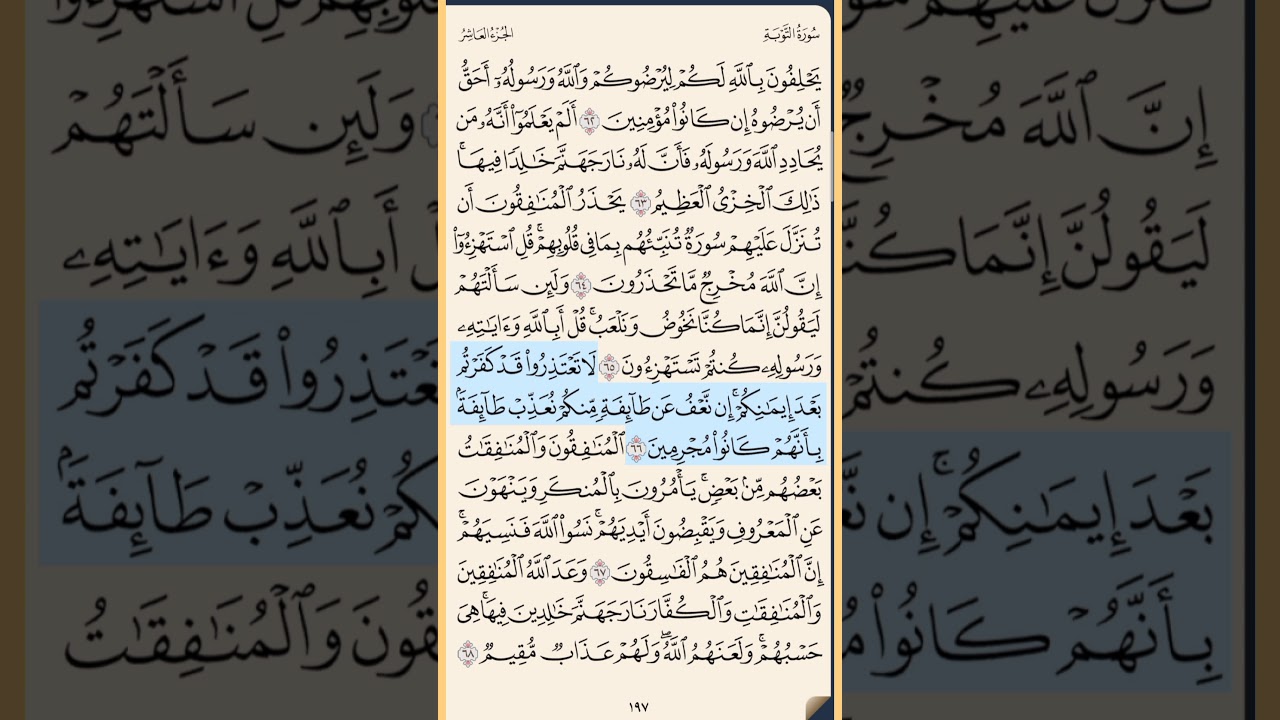 سُورَةُ التَّوۡبَةِ
الجُزۡءُ العَاشِرُ
يَحۡلِفُونَ بِٱللَّهِ لَكُمۡ لِيُرۡضُوكُمۡ وَٱللَّهُ وَرَسُولُهُۥٓ أَحَقُّ
أَن يُرۡضُوهُ إِن كَانُواْ مُؤۡمِنِينَ ٦٢ أَلَمۡ يَعۡلَمُوٓاْ أَنَّهُۥ مَن
يُحَادِدِ ٱللَّهَ وَرَسُولَهُۥ فَأَنَّ لَهُۥ نَارَ جَهَنَّمَ خَٰلِدٗا فِيهَاۚ
ذَٰلِكَ ٱلۡخِزۡيُ ٱلۡعَظِيمُ ٦٣ يَحۡذَرُ ٱلۡمُنَٰفِقُونَ أَن
تُنَزَّلَ عَلَيۡهِمۡ سُورَةٞ تُنَبِّئُهُم بِمَا فِي قُلُوبِهِمۡۚ قُلِ ٱسۡتَهۡزِءُوٓاْ
إِنَّ ٱللَّهَ مُخۡرِجٞ مَّا تَحۡذَرُونَ ٦٤ وَلَئِن سَأَلۡتَهُمۡ
لَيَقُولُنَّ إِنَّمَا كُنَّا نَخُوضُ وَنَلۡعَبُۚ قُلۡ أَبِٱللَّهِ وَءَايَٰتِهِۦ
وَرَسُولِهِۦ كُنتُمۡ تَسۡتَهۡزِءُونَ ٦٥ لَا تَعۡتَذِرُواْ قَدۡ كَفَرۡتُم
بَعۡدَ إِيمَٰنِكُمۡۚ إِن نَّعۡفُ عَن طَآئِفَةٖ مِّنكُمۡ نُعَذِّبۡ طَآئِفَةَۢ
بِأَنَّهُمۡ كَانُواْ مُجۡرِمِينَ ٦٦ ٱلۡمُنَٰفِقُونَ وَٱلۡمُنَٰفِقَٰتُ
بَعۡضُهُم مِّنۢ بَعۡضٖۚ يَأۡمُرُونَ بِٱلۡمُنكَرِ وَيَنۡهَوۡنَ
عَنِ ٱلۡمَعۡرُوفِ وَيَقۡبِضُونَ أَيۡدِيَهُمۡۚ نَسُواْ ٱللَّهَ فَنَسِيَهُمۡۚ
إِنَّ ٱلۡمُنَٰفِقِينَ هُمُ ٱلۡفَٰسِقُونَ ٦٧ وَعَدَ ٱللَّهُ ٱلۡمُنَٰفِقِينَ
وَٱلۡمُنَٰفِقَٰتِ وَٱلۡكُفَّارَ نَارَ جَهَنَّمَ خَٰلِدِينَ فِيهَاۚ هِيَ
حَسۡبُهُمۡۚ وَلَعَنَهُمُ ٱللَّهُۖ وَلَهُمۡ عَذَابٞ مُّقِيمٞ ٦٨
١٩٧